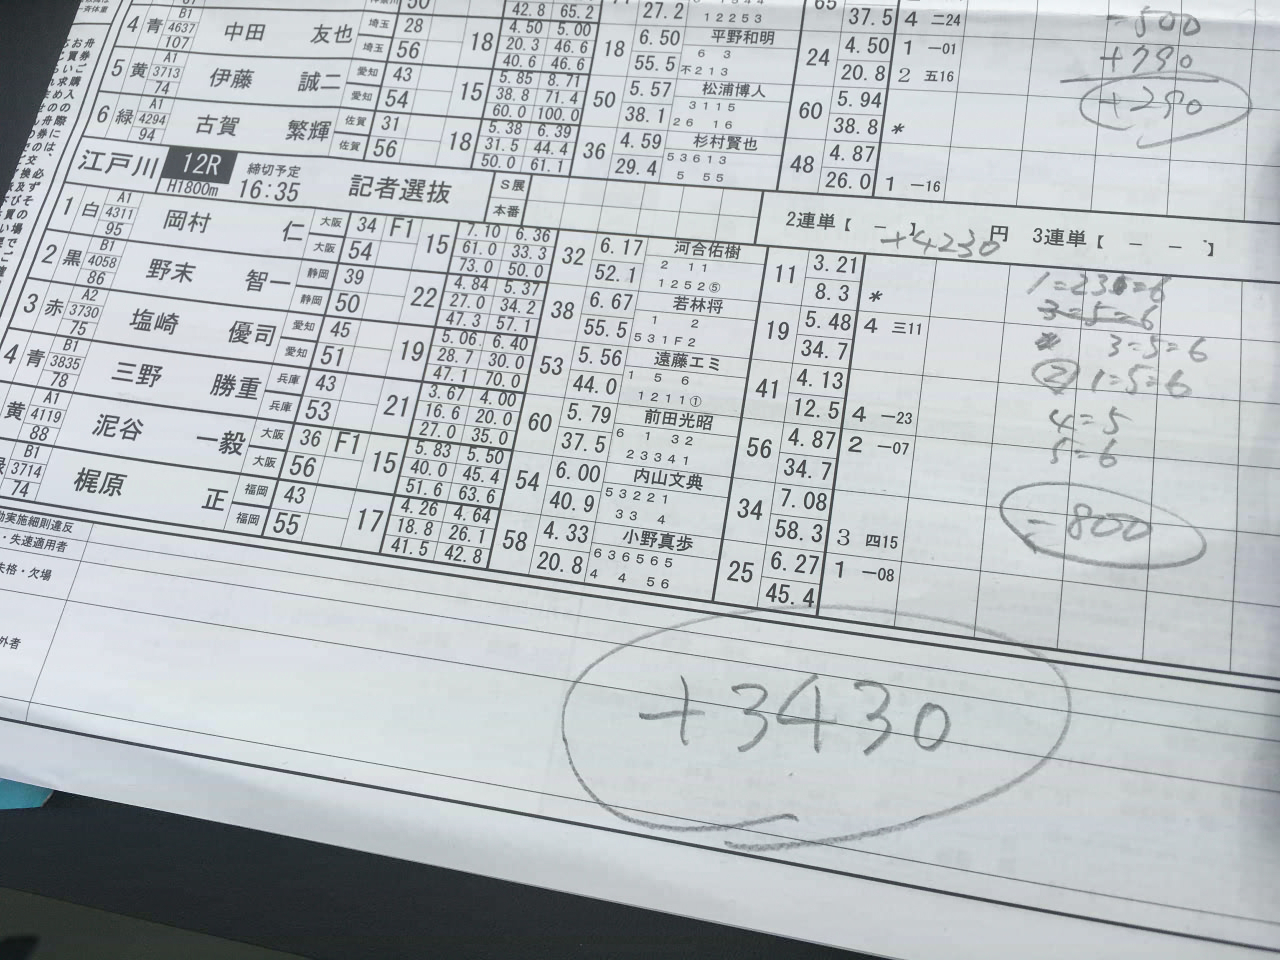 42.8 65.2 27.2 12253 37.5 4 二24 -500
4 青 B1 4637 107 中田 友也 埼玉 埼玉 28 56 18 4.50 5.00 20.3 46.6 40.6 46.6 18 6.50 55.5 平野和明 6 3 不213 24 4.50 20.8 1 一01 2 五16 +790
5 黄 A1 3713 74 伊藤 誠二 愛知 愛知 43 54 15 5.85 8.71 38.8 71.4 60.0 100.0 50 5.57 38.1 松浦博人 3115 26 16 60 5.94 38.8 * +290
6 緑 A1 4294 94 古賀 繁輝 佐賀 佐賀 31 56 18 5.38 6.39 31.5 44.4 50.0 61.1 36 4.59 29.4 杉村賢也 53613 5 55 48 4.87 26.0 1 一16
江戸川 12R H1800m 締切予定 16:35 記者選抜 S展 本番 2連単【 － 】 円 3連単【 － － 】
+4230
1 白 A1 4311 95 岡村 仁 大阪 大阪 34 F1 54 15 7.10 6.36 61.0 33.3 73.0 50.0 32 6.17 52.1 河合佑樹 2 11 1252⑤ 11 3.21 8.3 *
2 黒 B1 4058 86 野末 智一 静岡 静岡 39 50 22 4.84 5.37 27.0 34.2 47.3 57.1 38 6.67 55.5 若林将 1 2 531F2 19 5.48 34.7 4 三11
3 赤 A2 3730 75 塩崎 優司 愛知 愛知 45 51 19 5.06 6.40 28.7 30.0 47.1 70.0 53 5.56 44.0 遠藤エミ 1 5 6 1211① 41 4.13 12.5 4 一23
4 青 B1 3835 78 三野 勝重 兵庫 兵庫 43 53 21 3.67 4.00 16.6 20.0 27.0 35.0 60 5.79 37.5 前田光昭 6 1 32 23341 56 4.87 34.7 2 一07
黄 A1 4119 88 泥谷 一毅 大阪 大阪 36 F1 56 15 5.83 5.50 40.0 45.4 51.6 63.6 54 6.00 40.9 内山文典 53221 33 4 34 7.08 58.3 3 四15
B1 3714 74 梶原 正 福岡 福岡 43 55 17 4.26 4.64 18.8 26.1 41.5 42.8 58 4.33 20.8 小野真歩 636565 4 4 56 25 6.27 45.4 1 一08
3=5=6
3=5=6
② 1=5=6
4=5
5=6
-800
実施細則違反
・失速適用者
失格・欠場
外者
+3430